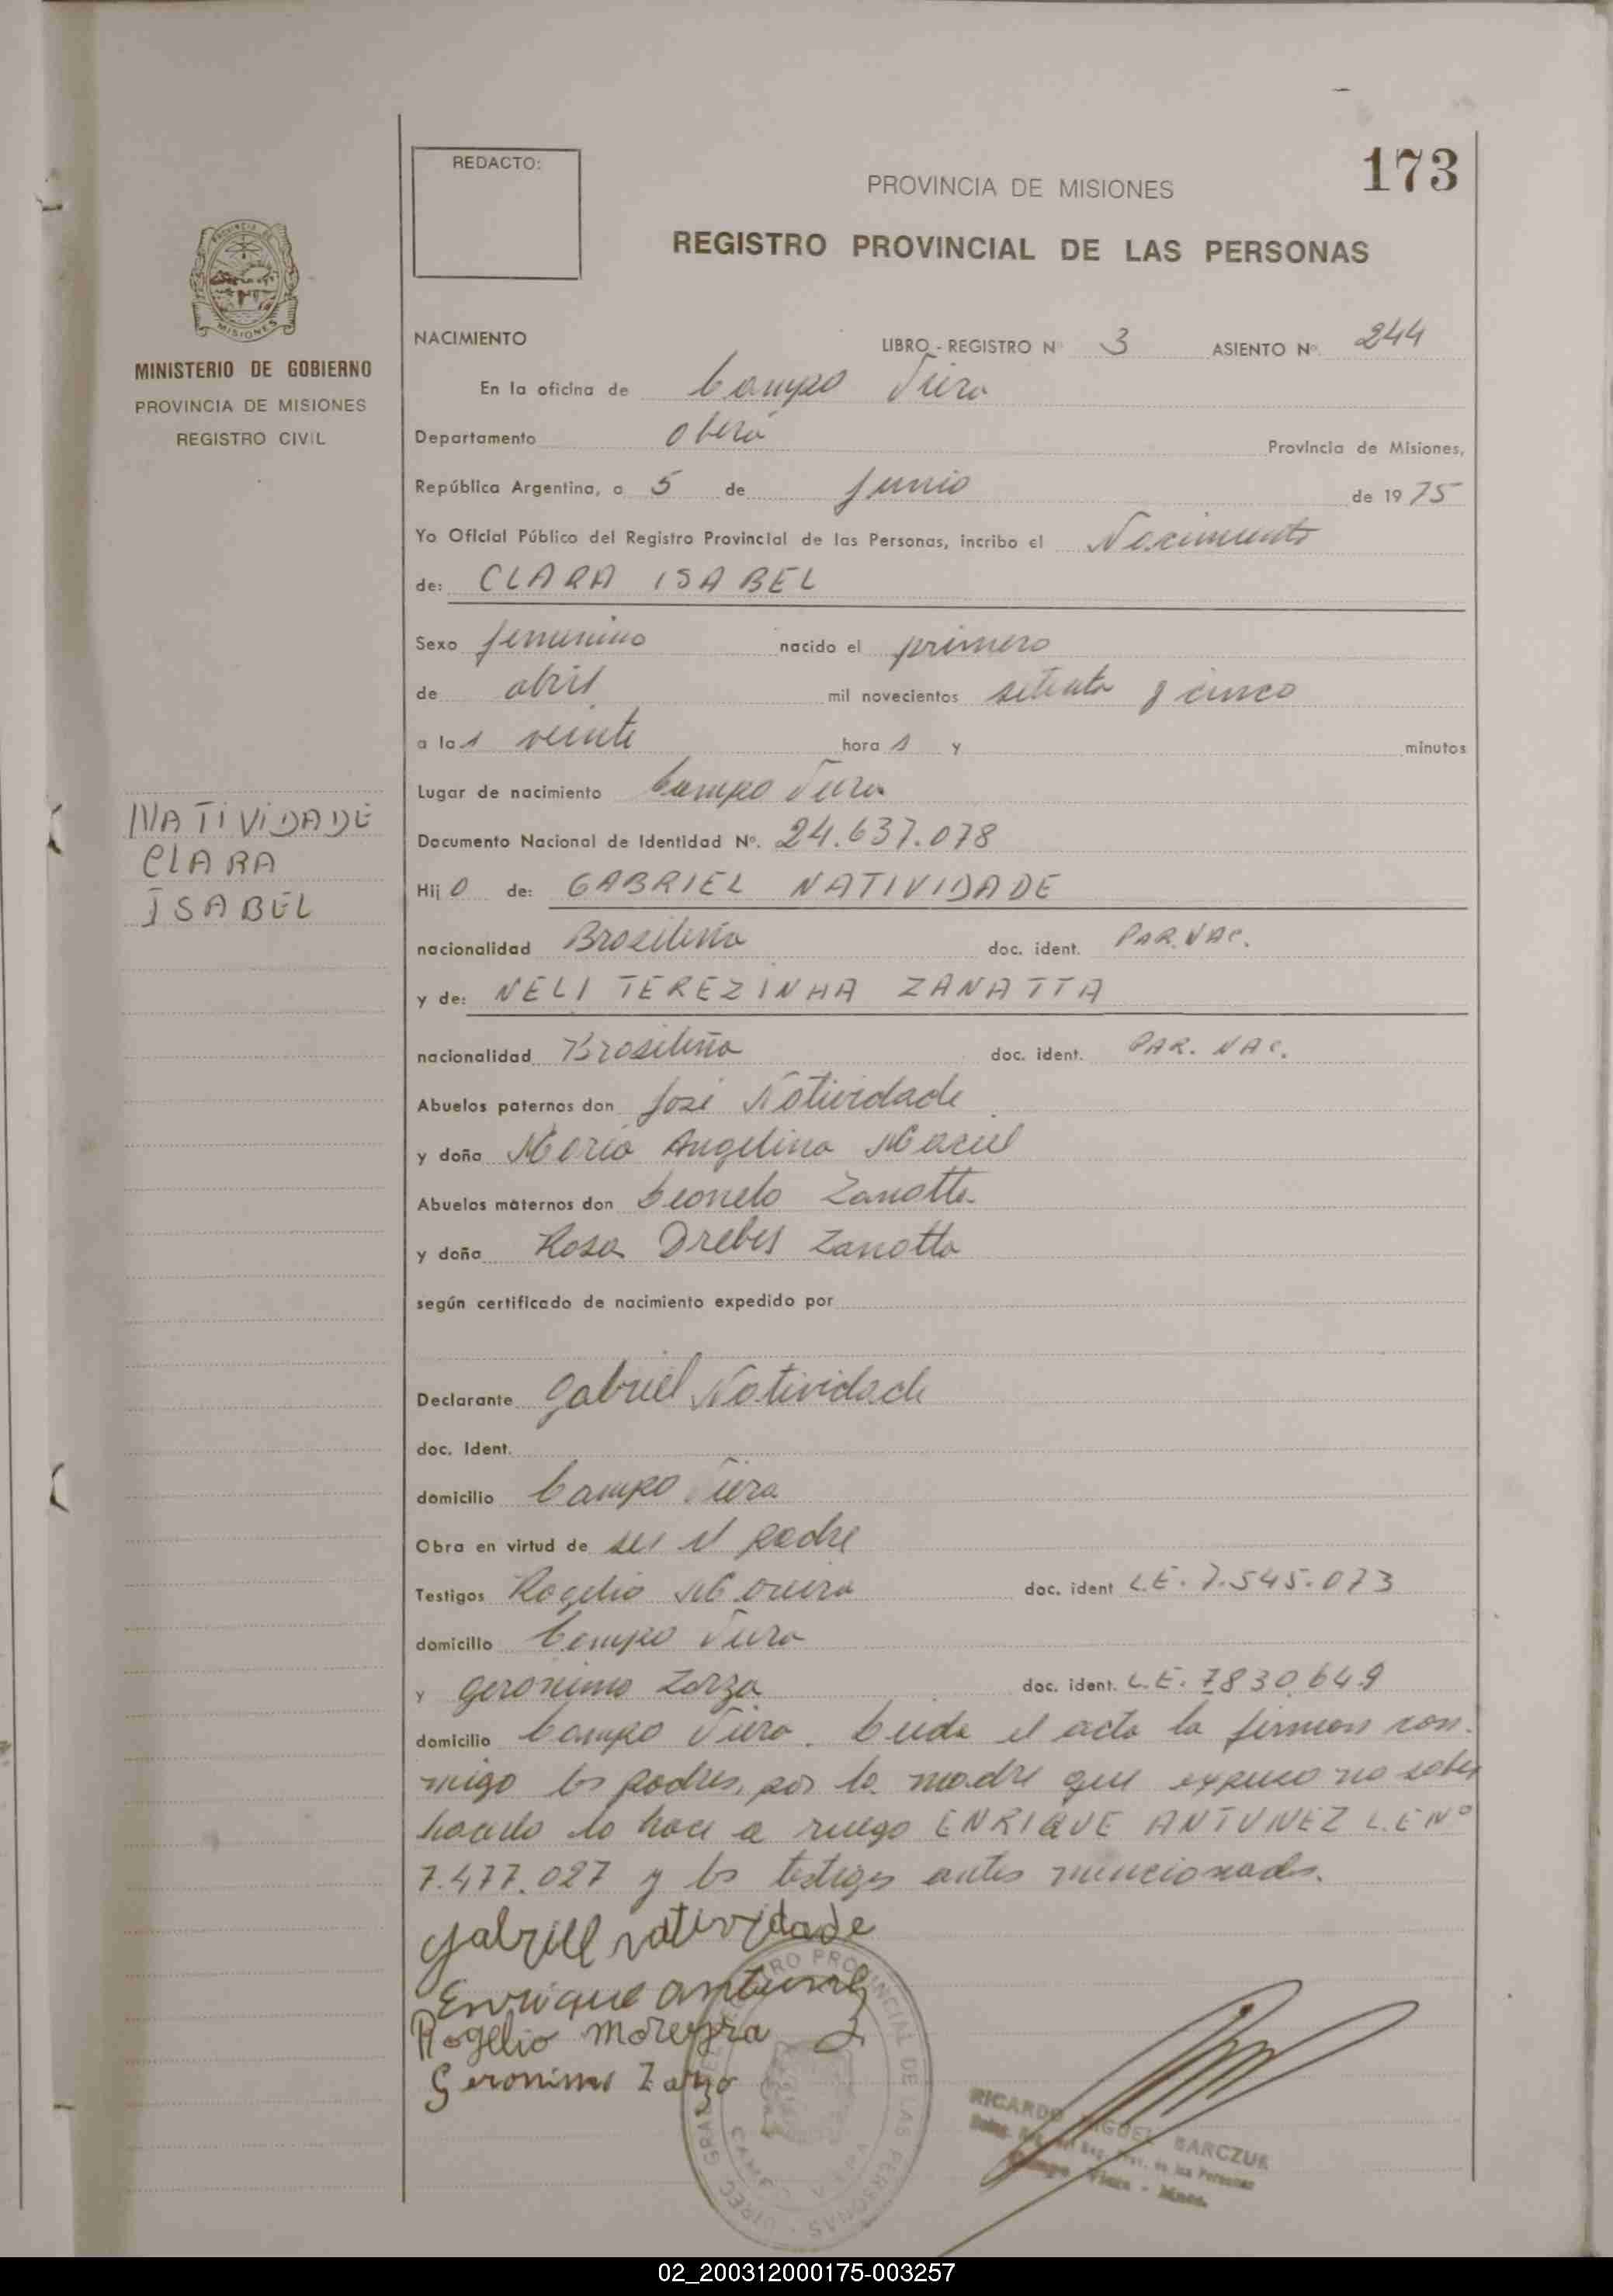 REDACTO:
173
PROVINCIA DE MISIONES
REGISTRO PROVINCIAL DE LAS PERSONAS
PROVINCIA DE
MISIONES
MINISTERIO DE GOBIERNO
PROVINCIA DE MISIONES
REGISTRO CIVIL
NACIMIENTO
LIBRO - REGISTRO Nº 3 ASIENTO Nº. 244
En la oficina de Campo Viera
Departamento Oberá Provincia de Misiones,
República Argentina, a 5 de Junio de 1975
Yo Oficial Público del Registro Provincial de las Personas, incribo el Nacimiento
de: CLARA ISABEL
Sexo femenino nacido el primero
de abril mil novecientos setenta y cinco
a las veinte horas y minutos
Lugar de nacimiento Campo Viera
Documento Nacional de Identidad Nº. 24.637.078
NATIVIDADE
CLARA
ISABEL
Hija de: GABRIEL NATIVIDADE
nacionalidad Brasileña doc. ident. PAR. NAC.
y de: NELI TEREZINHA ZANATTA
nacionalidad Brasileña doc. ident. PAR. NAC.
Abuelos paternos don José Natividade
y doña María Angelina Maciel
Abuelos maternos don Leonelo Zanatta
y doña Rosa Drebes Zanatta
según certificado de nacimiento expedido por
Declarante Gabriel Natividade
doc. Ident.
domicilio Campo Viera
Obra en virtud de ser el padre
Testigos Rogelio Moreira doc. ident L.E. 7.545.073
domicilio Campo Viera
y Geronimo Zarza doc. ident. L.E. 7830649
domicilio Campo Viera. Leida el acta la firman con-
migo los padres, por la madre que expuso no saber
hacerlo lo hace a ruego ENRIQUE ANTUNEZ L.E Nº
7.477.027 y los testigos antes mencionados.
Gabriel Natividade
Enrique Antunez
Rogelio Moreyra
Geronimo Zarza
RICARDO MIGUEL BARCZUK
de las Personas
Campo Viera - Mnes.
02_200312000175-003257